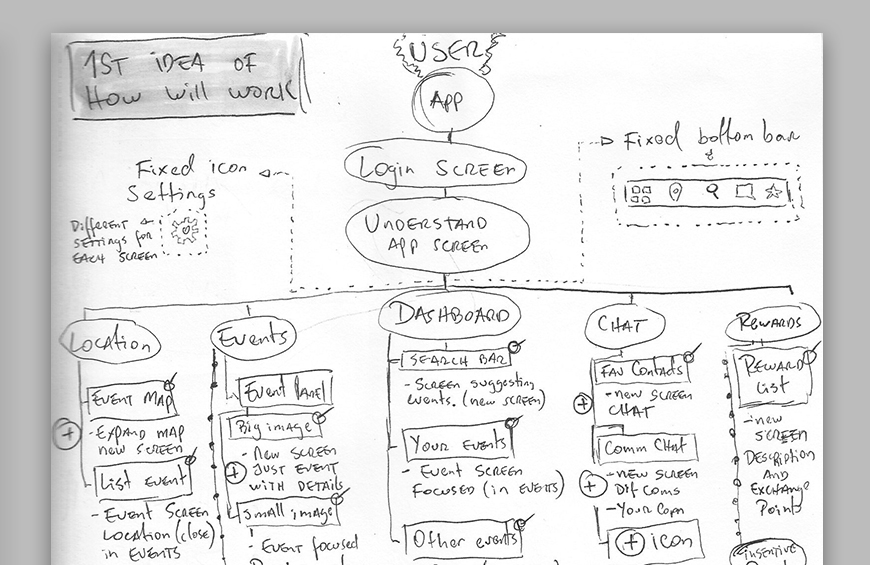 1ST iDEA OF
HOW Will WORK
USER
APP
LOGIN SCREEN
UNDERSTAND
APP SCREEN
Fixed icon
Settings
Different
settings for
EACH SCREEN
Fixed bottom bar
LOCATION
EVENT MAP
- EXPAND MAP
NEW SCREEN
LIST EVENT
- EVENT SCREEN
LOCATION (close)
in EVENTS
Events
EVENT PANEL
Big image
- NEW SCREEN
JUST EVENT
WITH DETAILS
Small image
- EVENT focused
DASHBOARD
SEARCH BAR
- SCREEN SUGGESTING
EVENTS. (NEW SCREEN)
YOUR EVENTS
- EVENT SCREEN
FOCUSED (in EVENTS)
Other events
CHAT
FAV CONTACTS
- NEW SCREEN
CHAT
COMM CHAT
- NEW SCREEN
DIF COMS
- YOUR COM
+ icon
REWARDS
REWARD
LIST
- NEW
SCREEN
DESCRIPTION
AND
EXCHANGE
POINT
INSENTIVE